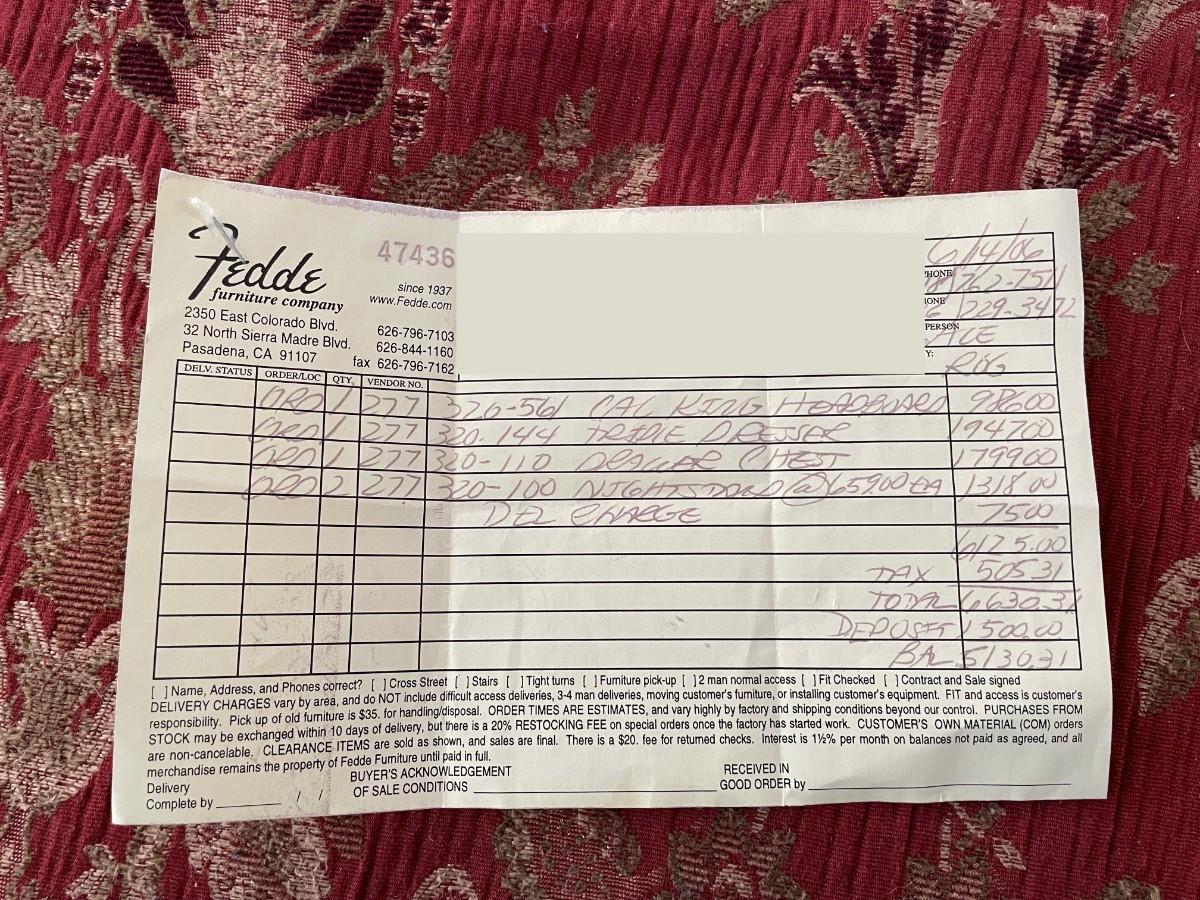 Fedde
furniture company
47436
since 1937
www.Fedde.com
2350 East Colorado Blvd.
32 North Sierra Madre Blvd.
Pasadena, CA 91107
626-796-7103
626-844-1160
fax 626-796-7162
6/14/06
HONE
762-7511
ONE
229-3472
PERSON
Y:
DELV. STATUS ORDER/LOC QTY. VENDOR NO.
ORD 1 277 320-561 CAL KING HEADBOARD 986 00
ORD 1 277 320-144 TRIPLE DRESSER 1947 00
ORD 1 277 320-110 DRAWER CHEST 1799 00
ORD 2 277 320-100 NIGHTSTAND @ 659.00 EA 1318 00
DEL CHARGE 75 00
6125.00
TAX 505 31
TOTAL 6630.31
DEPOSIT 1500.00
BAL 5130.31
[ ] Name, Address, and Phones correct? [ ] Cross Street [ ] Stairs [ ] Tight turns [ ] Furniture pick-up [ ] 2 man normal access [ ] Fit Checked [ ] Contract and Sale signed
DELIVERY CHARGES vary by area, and do NOT include difficult access deliveries, 3-4 man deliveries, moving customer's furniture, or installing customer's equipment. FIT and access is customer's
responsibility. Pick up of old furniture is $35. for handling/disposal. ORDER TIMES ARE ESTIMATES, and vary highly by factory and shipping conditions beyond our control. PURCHASES FROM
STOCK may be exchanged within 10 days of delivery, but there is a 20% RESTOCKING FEE on special orders once the factory has started work. CUSTOMER'S OWN MATERIAL (COM) orders
are non-cancelable. CLEARANCE ITEMS are sold as shown, and sales are final. There is a $20. fee for returned checks. Interest is 1½% per month on balances not paid as agreed, and all
merchandise remains the property of Fedde Furniture until paid in full.
Delivery
Complete by / /
BUYER'S ACKNOWLEDGEMENT
OF SALE CONDITIONS
RECEIVED IN
GOOD ORDER by